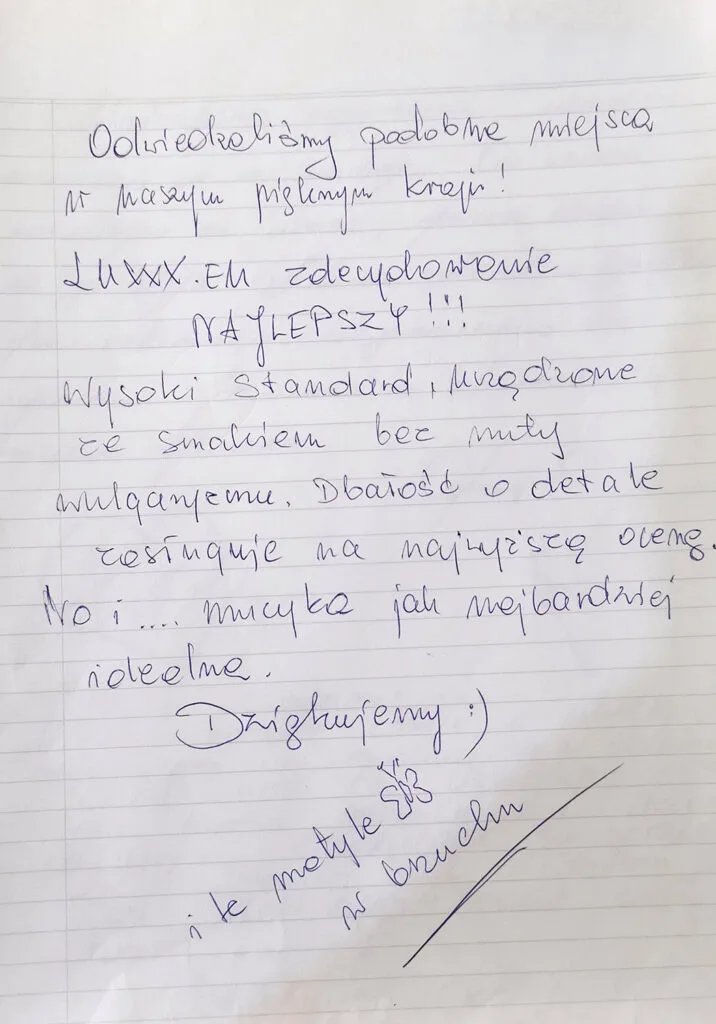 Odwiedzaliśmy podobne miejsca
w naszym pięknym kraju!
LUXXX.EU zdecydowanie
NAJLEPSZY!!!
Wysoki standard, urządzone
ze smakiem bez nuty
wulgaryzmu. Dbałość o detale
zasługuje na najwyższą ocenę.
No i .... muzyka jak najbardziej
idealna.
Dziękujemy :)
i te motyle
w brzuchu